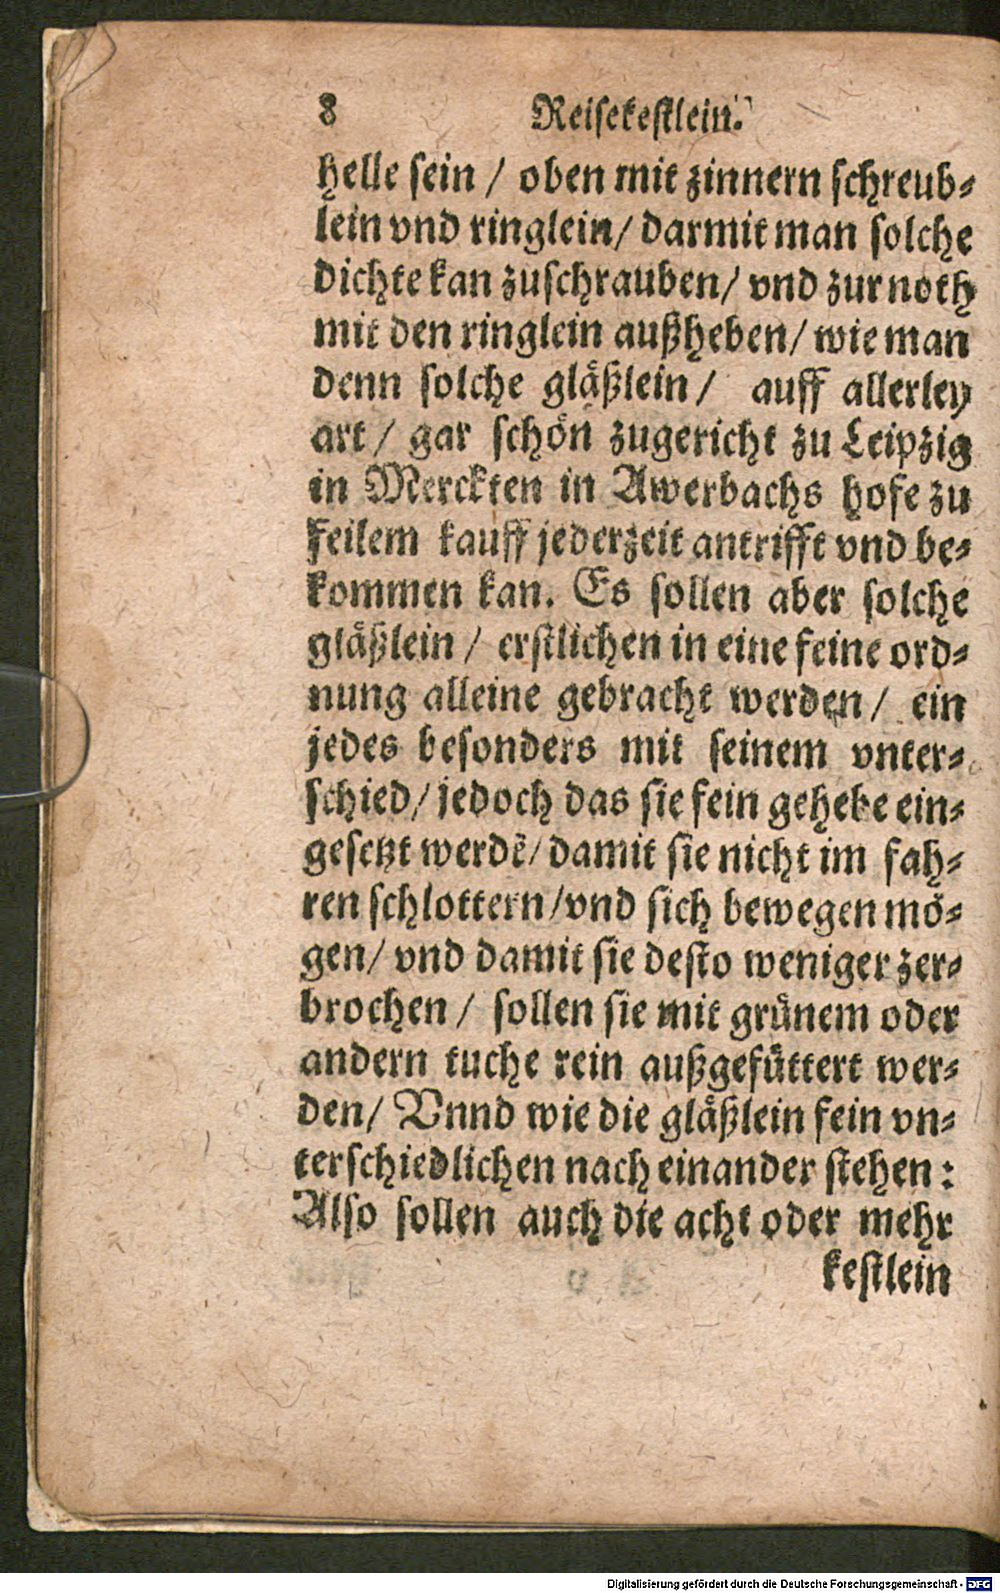 8 Reisekestlein.
helle sein / oben mit zinnern schreub-
lein vnd ringlein/ darmit man solche
dichte kan zuschrauben/ vnd zur noth
mit den ringlein außheben/ wie man
denn solche gläßlein / auff allerley
art / gar schön zugericht zu Leipzig
in Merckten in Awerbachs hofe zu
feilem kauff jederzeit antrifft vnd be-
kommen kan. Es sollen aber solche
gläßlein / erstlichen in eine feine ord-
nung alleine gebracht werden / ein
jedes besonders mit seinem vnter-
schied/ jedoch das sie fein gehebe ein-
gesetzt werdẽ/ damit sie nicht im fah-
ren schlottern/vnd sich bewegen mö-
gen/ vnd damit sie desto weniger zer-
brochen / sollen sie mit grünem oder
andern tuche rein außgefüttert wer-
den/ Vnnd wie die gläßlein fein vn-
terschiedlichen nach einander stehen:
Also sollen auch die acht oder mehr
kestlein
Digitalisierung gefördert durch die Deutsche Forschungsgemeinschaft - DFG